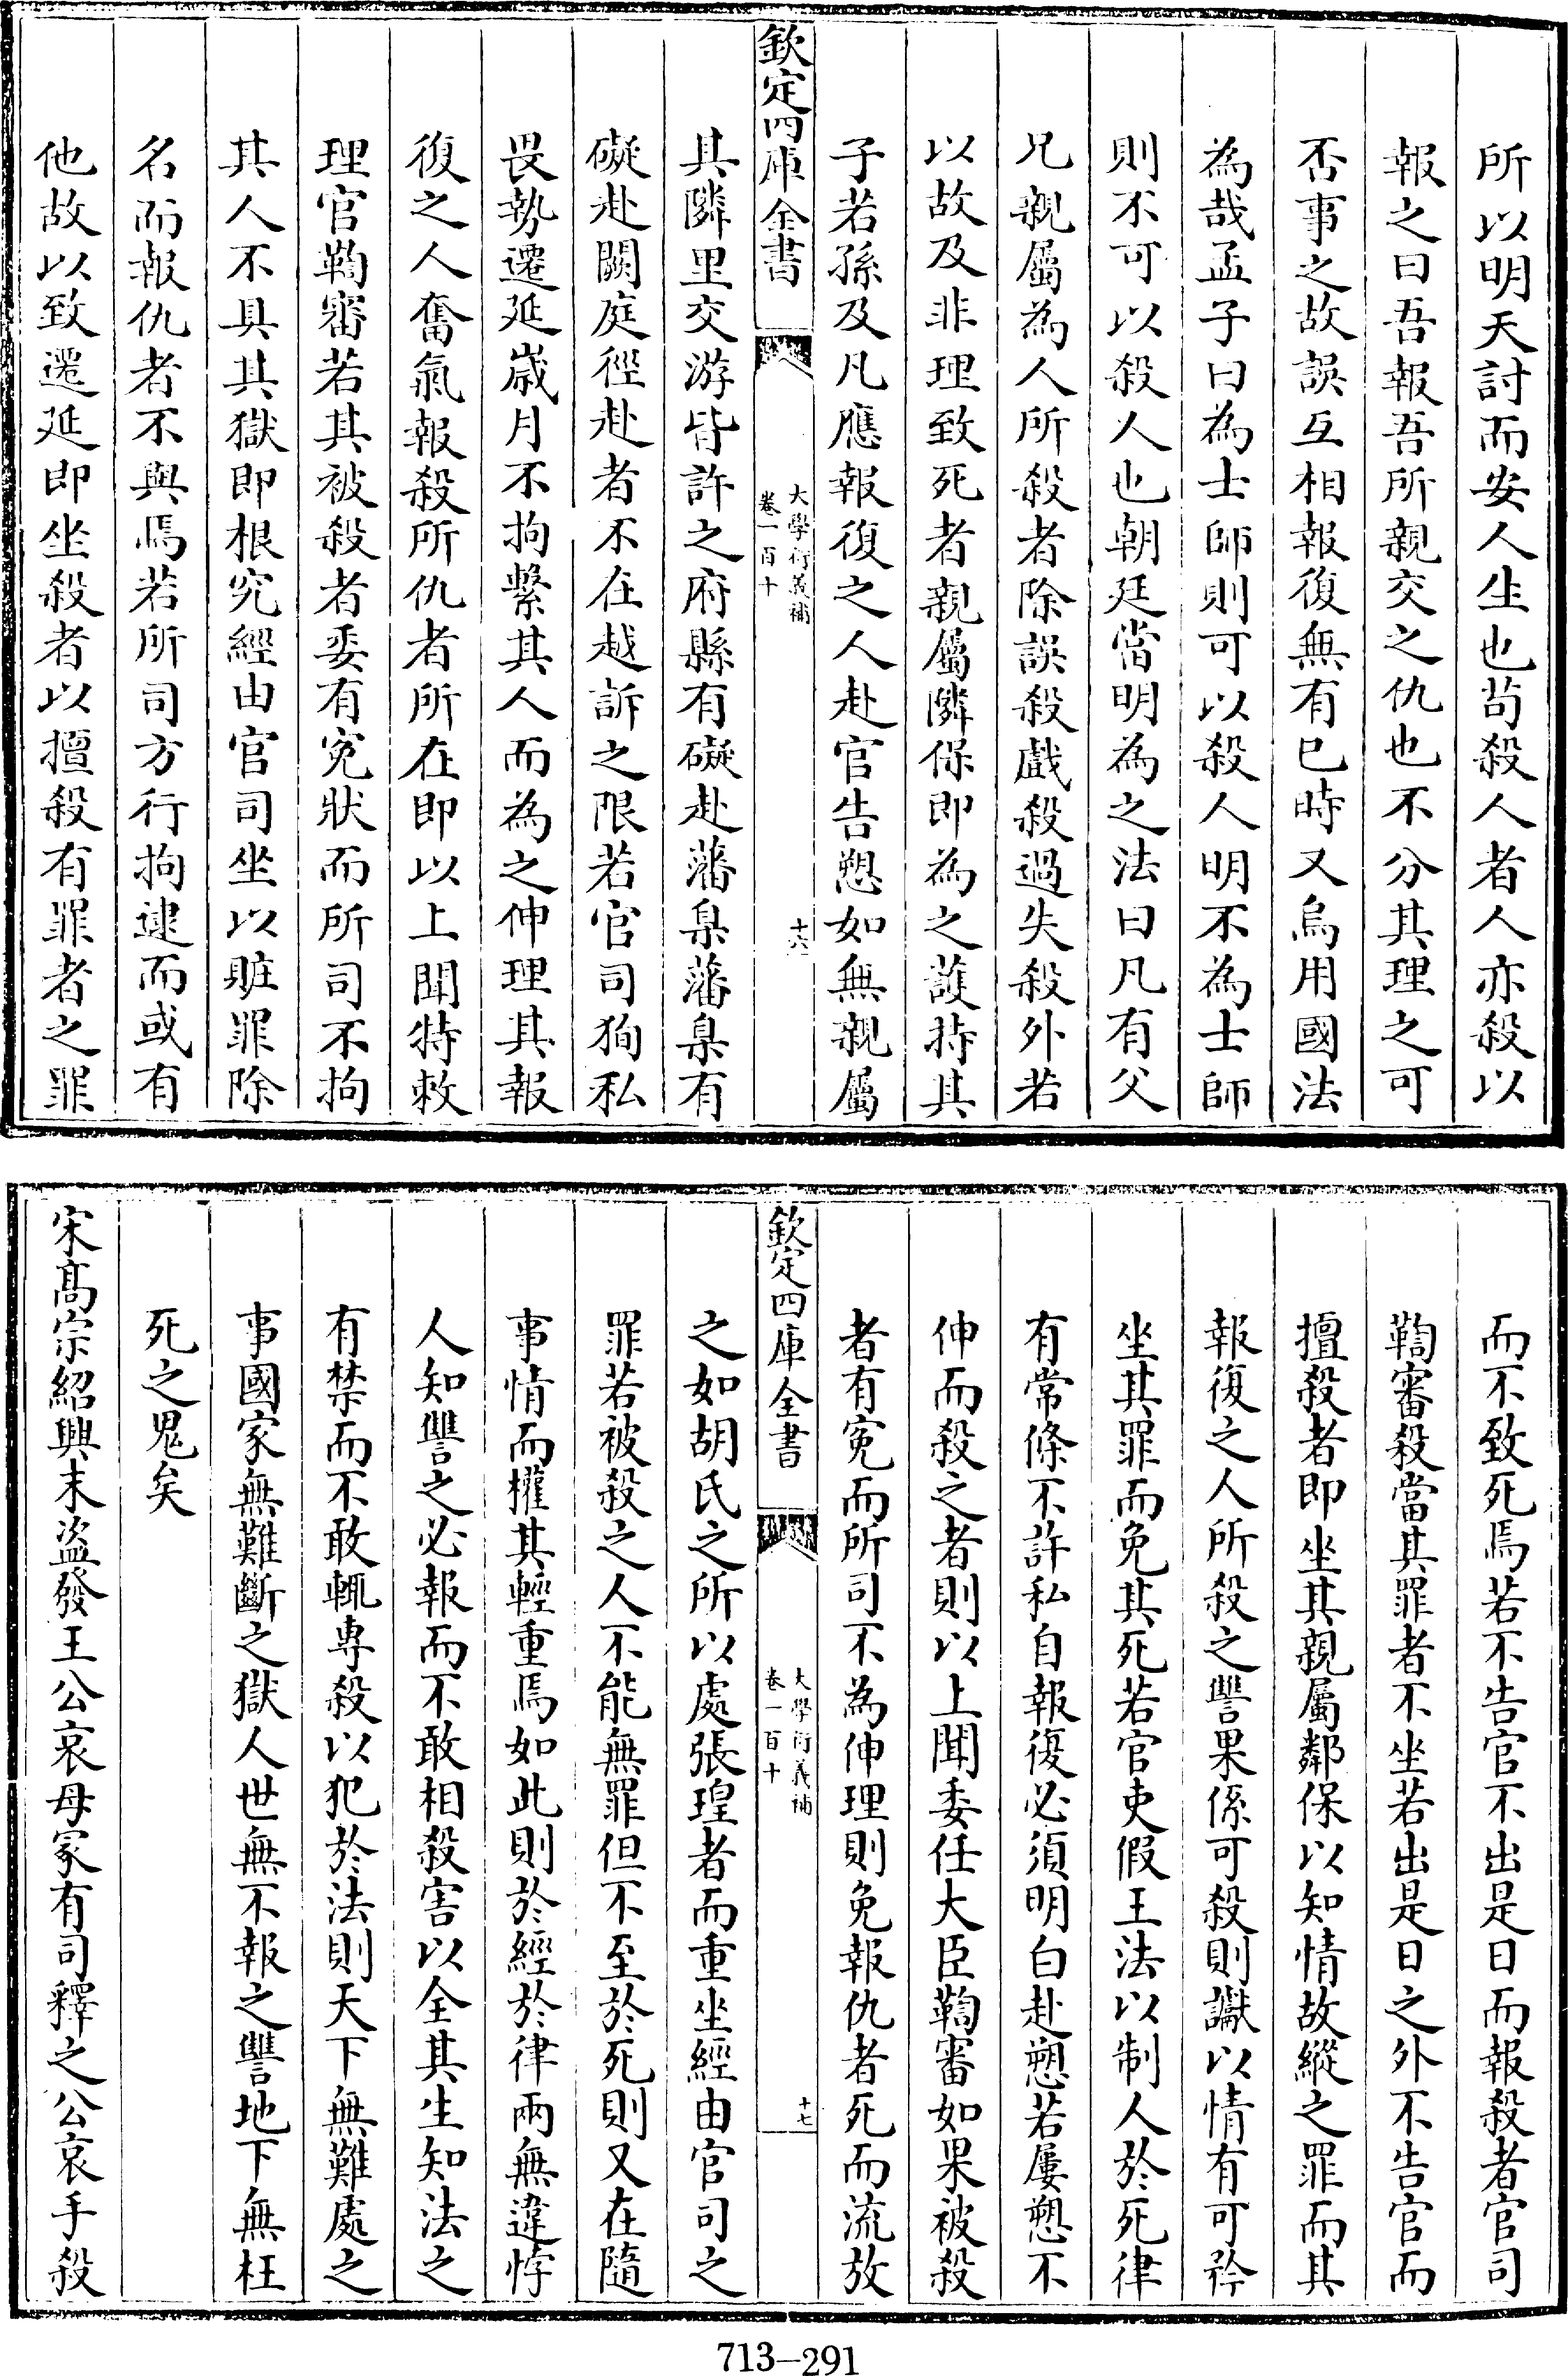 所以明天討而安人生也茍殺人者人亦殺以
報之曰吾報吾所親交之仇也不分其理之可
否事之故誤互相報復無有已時又烏用國法
為哉孟子曰為士師則可以殺人明不為士師
則不可以殺人也朝廷當明為之法曰凡有父
兄親屬為人所殺者除誤殺戲殺過失殺外若
以故及非理致死者親屬隣保即為之護持其
子若孫及凡應報復之人赴官告愬如無親屬
欽定四庫全書
大學衍義補
卷一百十
十六
其隣里交游皆許之府縣有礙赴藩臬藩臬有
礙赴闕庭徑赴者不在越訴之限若官司狥私
畏勢遷延歲月不拘繫其人而為之伸理其報
復之人奮氣報殺所仇者所在即以上聞特敕
理官鞫審若其被殺者委有寃狀而所司不拘
其人不具其獄即根究經由官司坐以贓罪除
名而報仇者不與焉若所司方行拘逮而或有
他故以致遷延即坐殺者以擅殺有罪者之罪
而不致死焉若不告官不出是日而報殺者官司
鞫審殺當其罪者不坐若出是日之外不告官而
擅殺者即坐其親屬鄰保以知情故縱之罪而其
報復之人所殺之讐果係可殺則讞以情有可矜
坐其罪而免其死若官吏假王法以制人於死律
有常條不許私自報復必須明白赴愬若屢愬不
伸而殺之者則以上聞委任大臣鞫審如果被殺
者有寃而所司不為伸理則免報仇者死而流放
欽定四庫全書
大學衍義補
卷一百十
十七
之如胡氏之所以處張瑝者而重坐經由官司之
罪若被殺之人不能無罪但不至於死則又在隨
事情而權其輕重焉如此則於經於律兩無違悖
人知讐之必報而不敢相殺害以全其生知法之
有禁而不敢輒專殺以犯於法則天下無難處之
事國家無難斷之獄人世無不報之讐地下無枉
死之鬼矣
宋髙宗紹興末盜發王公哀母冢有司釋之公哀手殺
713-291